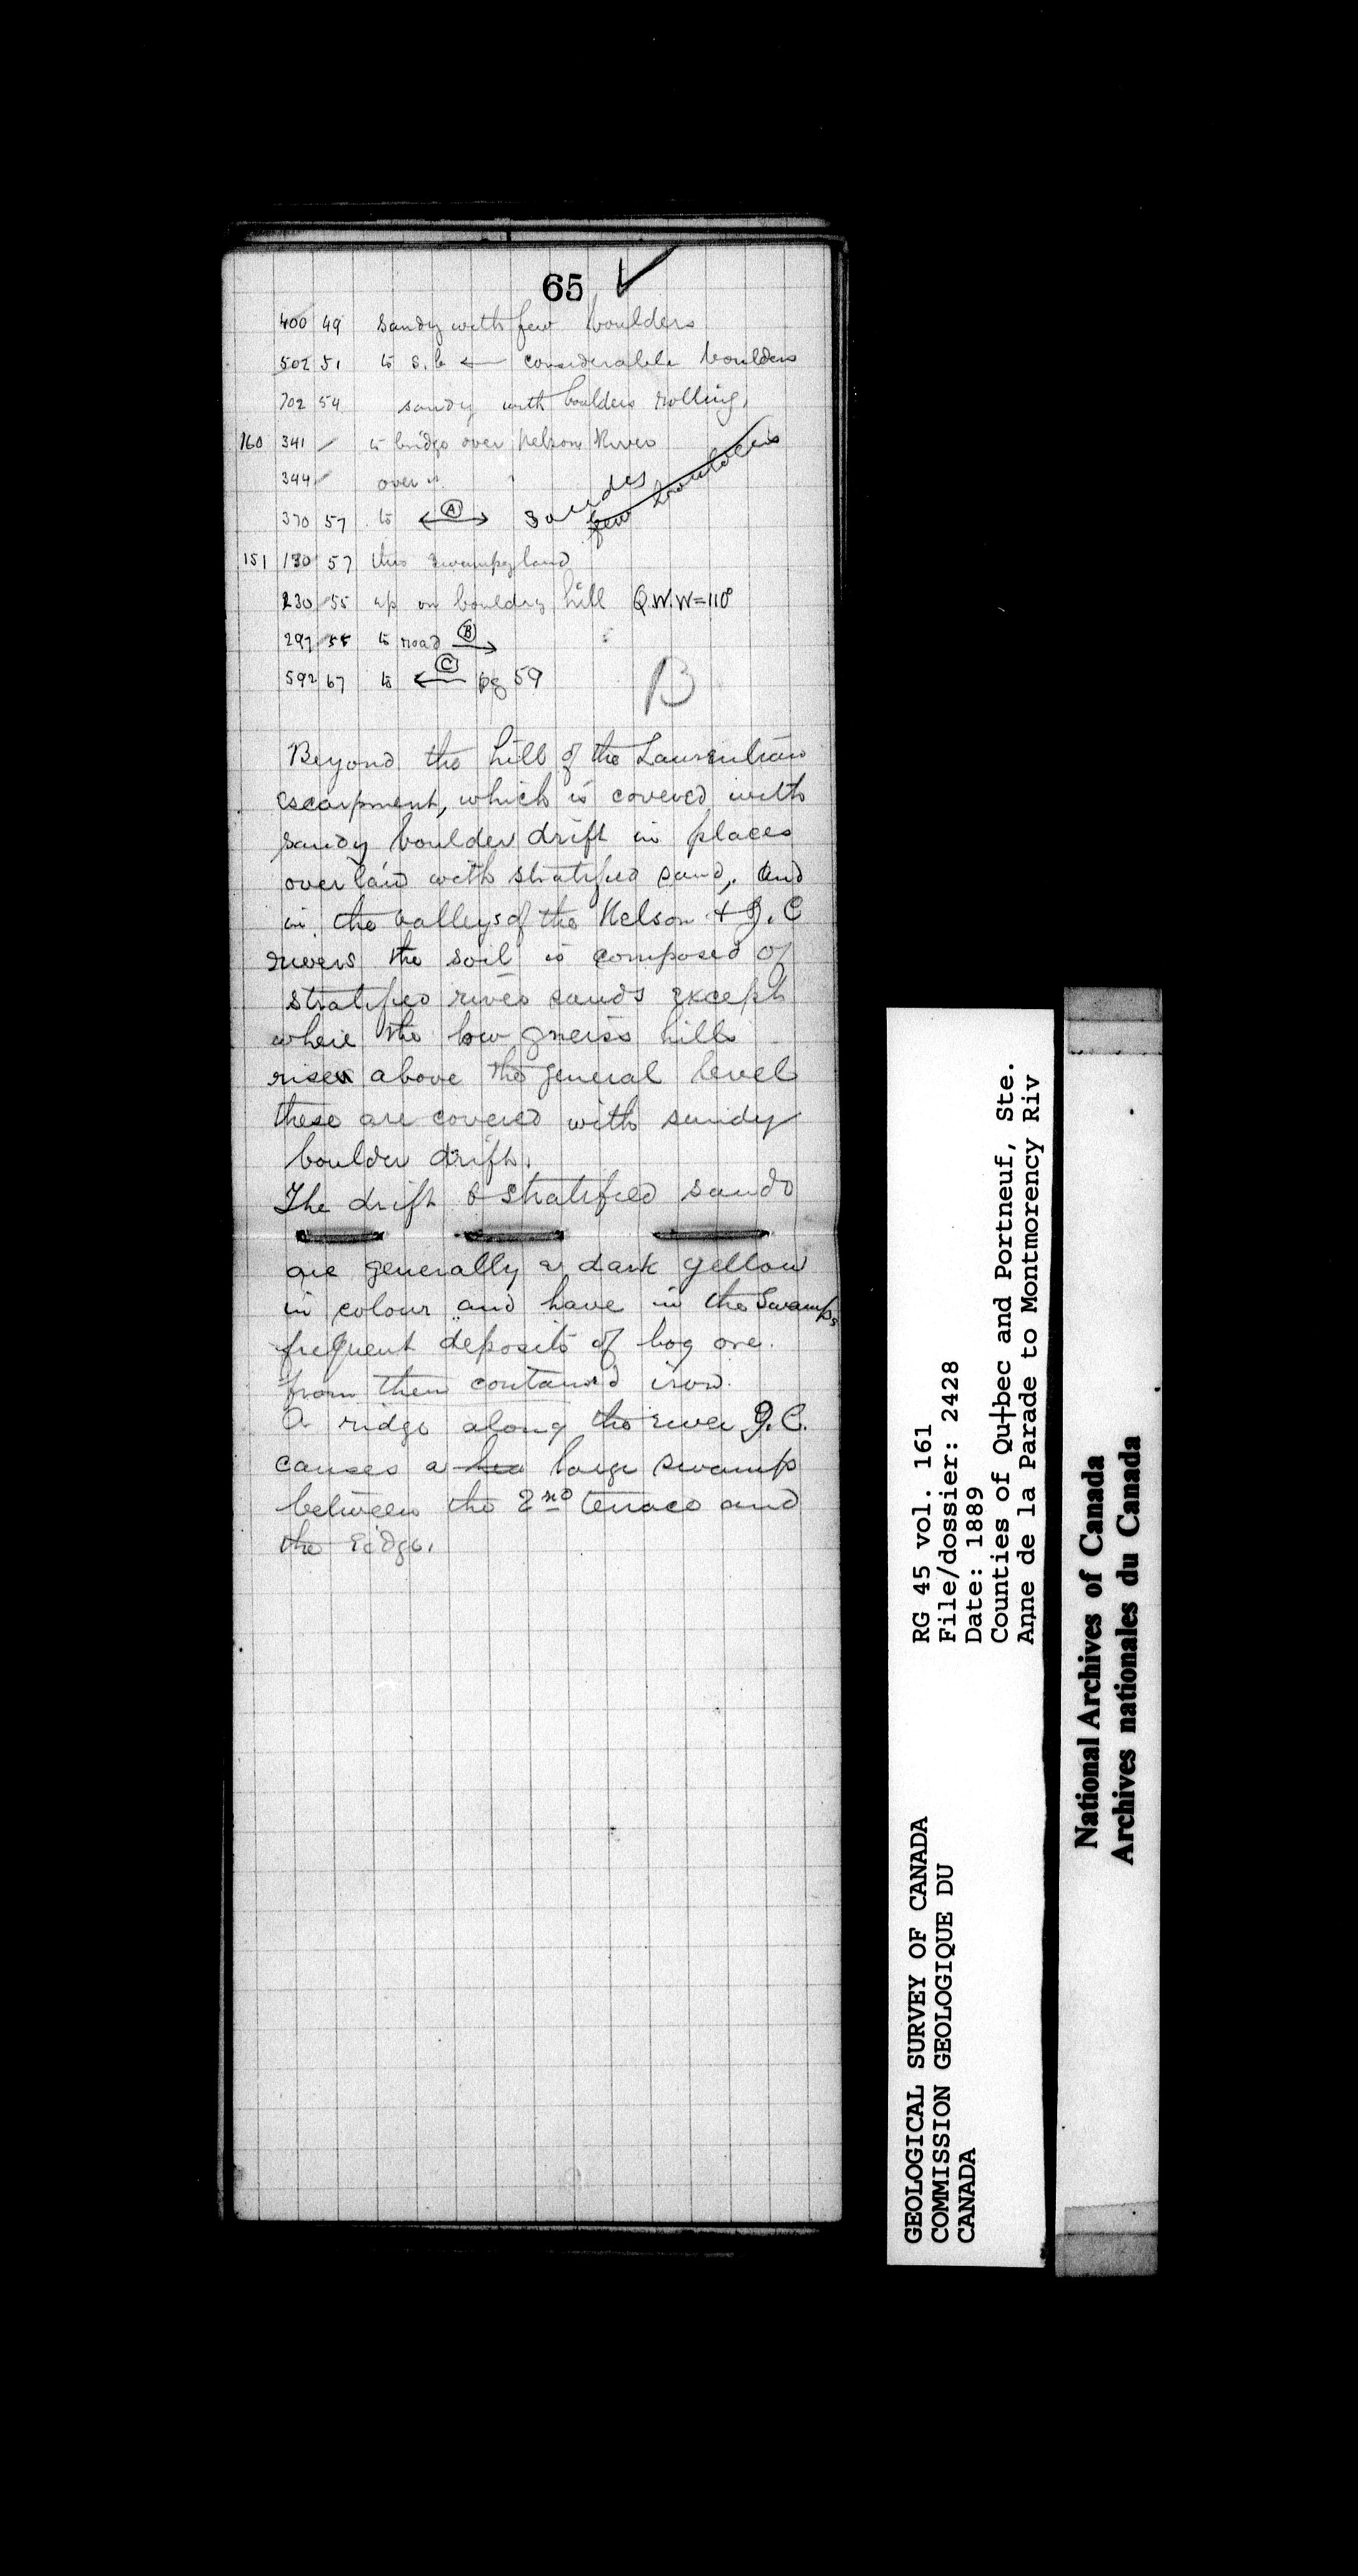 65 ✓
400 49 sandy with few boulders
502 51 to s.b ← considerable boulders
702 54 sandy with boulders rolling,
160 341 to bridge over Nelson River
344 over " "
370 57 to ←Ⓐ→ sandy few boulders
151 130 57 thro swampy land
230 55 up on bouldry hill Q.W.W=110°
297 55 to road Ⓑ→
592 67 to ←Ⓒ pg 59
B
Beyond the hill of the Laurentian
escarpment, which is covered with
sandy boulder drift in places
overlaid with stratified sand, and
in the valleys of the Nelson & J.C
rivers the soil is composed of
stratified river sands except
where the low gneiss hills
rises above the general level
these are covered with sandy
boulder drift.
The drift & stratified sands
are generally a dark yellow
in colour and have in the swamps
frequent deposits of bog ore.
from then contained iron.
A ridge along the river J.C.
causes a large swamp
between the 2nd terrace and
the ridge.
RG 45 vol. 161
File/dossier: 2428
Date: 1889
Counties of Qu†bec and Portneuf, Ste.
Anne de la Parade to Montmorency Riv
GEOLOGICAL SURVEY OF CANADA
COMMISSION GEOLOGIQUE DU
CANADA
National Archives of Canada
Archives nationales du Canada